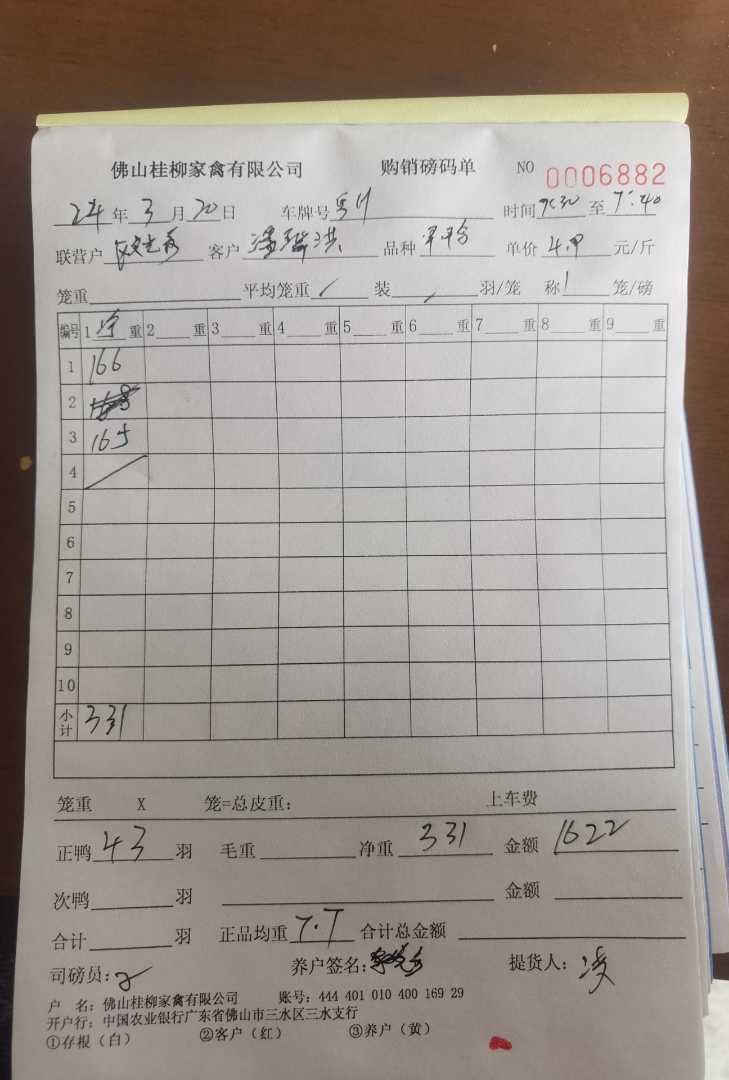 佛山桂柳家禽有限公司 购销磅码单 NO 0006882
24 年 3 月 20 日 车牌号 时间 7:30 至 7:40
联营户 客户 品种 单价 4.9 元/斤
笼重 平均笼重 / 装 / 羽/笼 称 1 笼/磅
编号 1 净 重 2 重 3 重 4 重 5 重 6 重 7 重 8 重 9 重
1 166
2
3 165
4
5
6
7
8
9
10
小计 331
笼重 X 笼=总皮重: 上车费
正鸭 43 羽 毛重 净重 331 金额 1622
次鸭 羽 金额
合计 羽 正品均重 7.7 合计总金额
司磅员: 养户签名: 提货人:
户 名: 佛山桂柳家禽有限公司 账号: 444 401 010 400 169 29
开户行: 中国农业银行广东省佛山市三水区三水支行
①存根(白) ②客户(红) ③养户(黄)